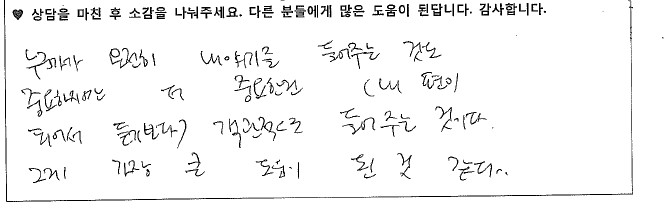 ♥ 상담을 마친 후 소감을 나눠주세요. 다른 분들에게 많은 도움이 된답니다. 감사합니다.
누군가가 온전히 내 얘기를 들어주는 것도
중요하지만 더 중요한건 (내 편이
되어서 듣기보다) 객관적으로 들어주는 것이다.
그게 가장 큰 도움이 된 것 같다..